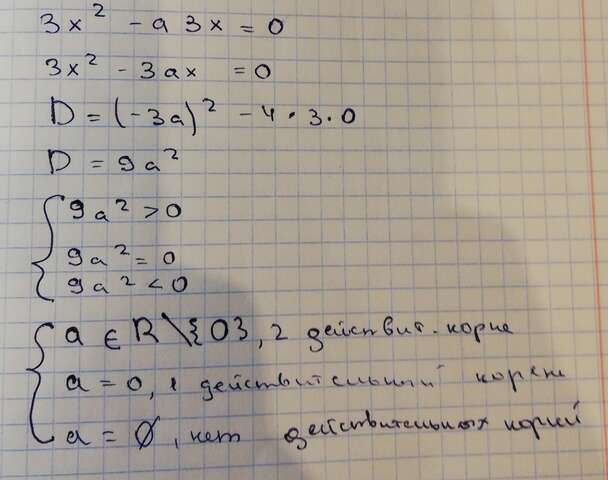 3x² - a 3x = 0
3x² - 3ax = 0
D = (-3a)² - 4 · 3 · 0
D = 9a²
9a² > 0
9a² = 0
9a² < 0
a ∈ R \ {0}, 2 действит. корня
a = 0, 1 действительный корень
a = ∅, нет действительных корней